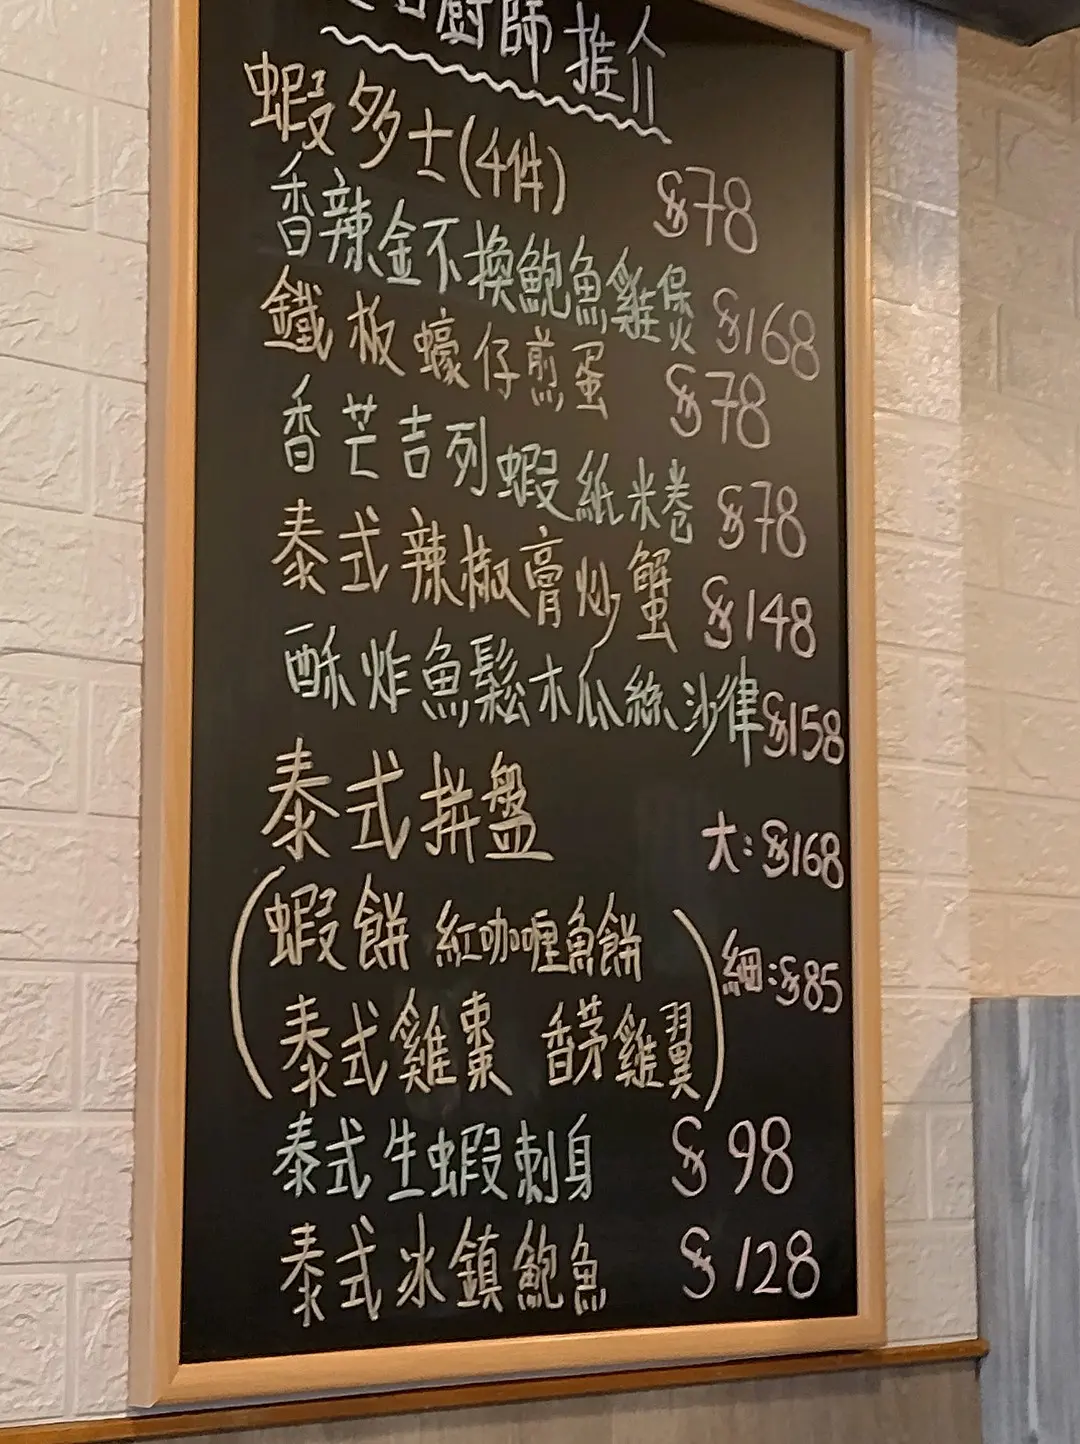 廚師推介
蝦多士(4件) $78
香辣金不換鮑魚雞煲 $168
鐵板蠔仔煎蛋 $78
香芒吉列蝦紙米卷 $78
泰式辣椒膏炒蟹 $148
酥炸魚鬆木瓜絲沙律 $158
泰式拼盤 大:$168
(蝦餅 紅咖喱魚餅 細:$85
泰式雞棗 香茅雞翼)
泰式生蝦刺身 $98
泰式冰鎮鮑魚 $128